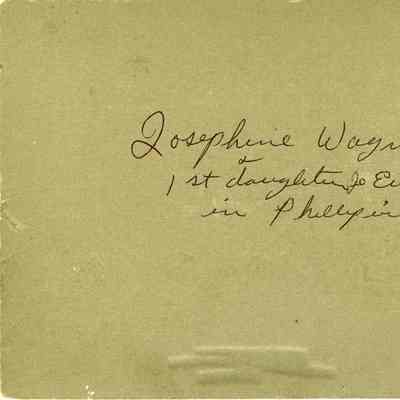 Josephine Wagn
&
1st daughter Jo Ev
in Phillipin